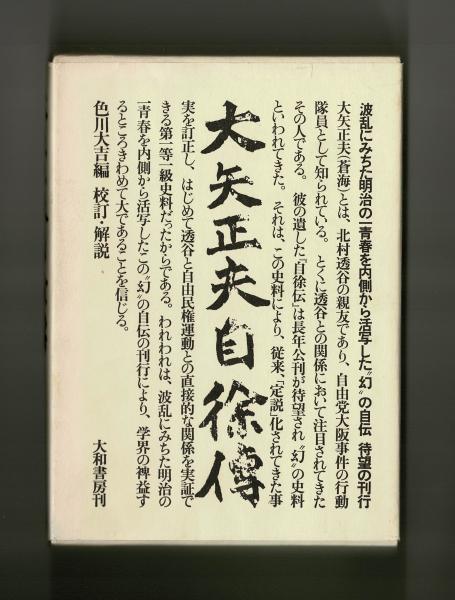 波乱にみちた明治の一青春を内側から活写した〝幻〟の自伝 待望の刊行
大矢正夫(蒼海)とは、北村透谷の親友であり、自由党大阪事件の行動
隊員として知られている。とくに透谷との関係において注目されてきた
その人である。彼の遺した「自徐伝」は長年公刊が待望され〝幻〟の史料
といわれてきた。それは、この史料により、従来、「定説」化されてきた事
大矢正夫自徐傳
実を訂正し、はじめて透谷と自由民権運動との直接的な関係を実証で
きる第一等一級史料だったからである。われわれは、波乱にみちた明治の
一青春を内側から活写したこの〝幻〟の自伝の刊行により、学界の裨益す
るところきわめて大であることを信じる。
色川大吉編 校訂・解説
大和書房刊